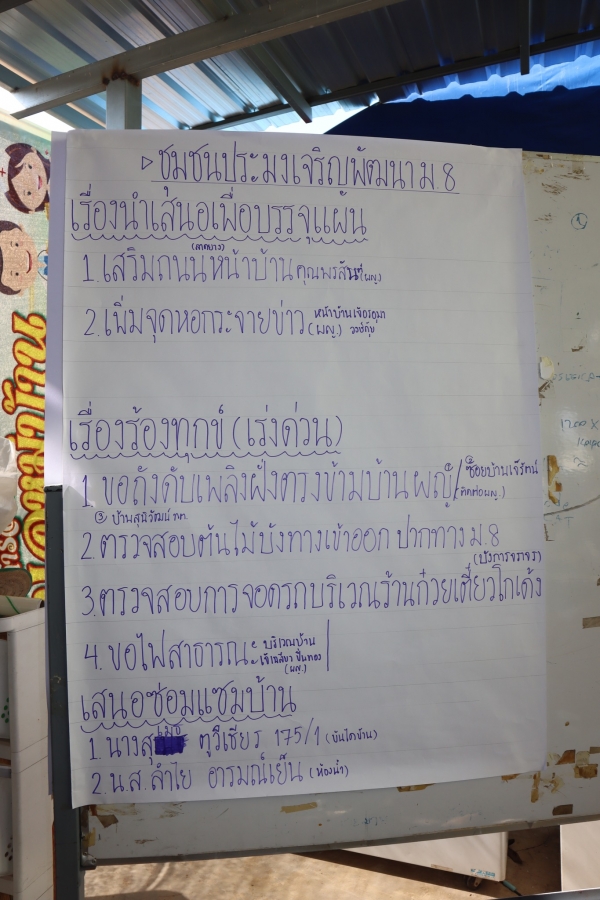 ▷ ชุมชนประมงเจริญพัฒนา ม.8
เรื่องนำเสนอเพื่อบรรจุแผ่น
1. เสริมถนนหน้าบ้าน คุณพรสันต์ (ผญ.)
2. เพิ่มจุดหอกระจายข่าว (ผญ.) หน้าบ้านเจ๊อรอุมา
เรื่องร้องทุกข์ (เร่งด่วน)
1 ขอถังดับเพลิงฝั่งตรงข้ามบ้าน ผญ๊ / ② ซอยบ้านเจ๊รัตน์ (ติดต่อผญ.)
③ บ้านสุนิวัฒน์
2. ตรวจสอบต้นไม้บังทางเข้าออก ปากทาง ม.8
(บังการจราจร)
3. ตรวจสอบการจอดรถบริเวณร้านก๋วยเตี๋ยวโกเด้ง
4. ขอไฟสาธารณะ บริเวณบ้าน
(ผญ.)
เสนอซ่อมแซมบ้าน
1. นางสุเมธ ตูวิเชียร 175/1 (บันไดบ้าน)
2. น.ส. ลำไย อารมณ์เย็น (ห้องน้ำ)